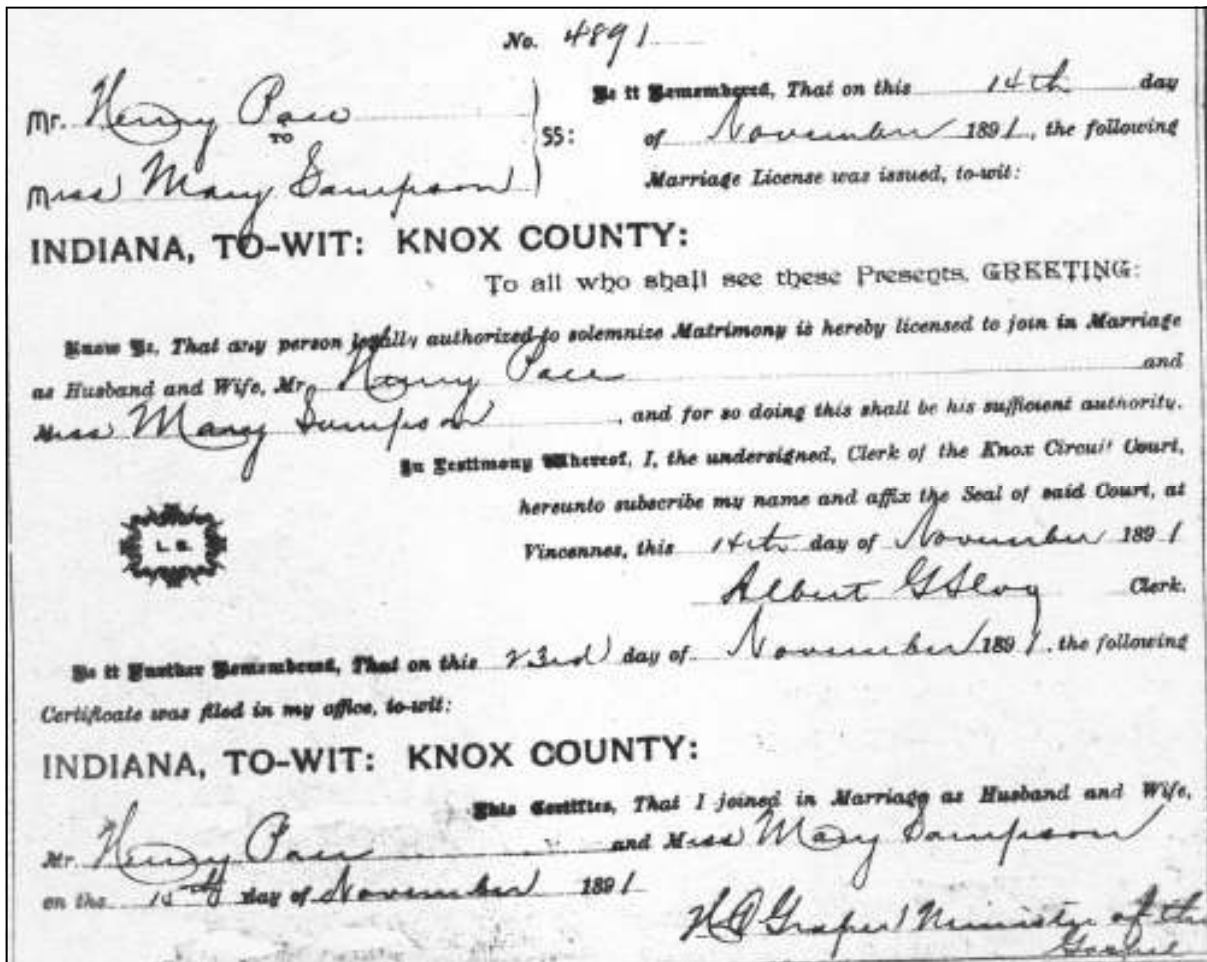 No. 4891
Mr. Henry Pace
TO
Miss Mary Sampson
SS:
Be it Remembered, That on this 14th day
of November 1891, the following
Marriage License was issued, to-wit:
INDIANA, TO-WIT: KNOX COUNTY:
To all who shall see these Presents, GREETING:
Know Ye, That any person legally authorized to solemnize Matrimony is hereby licensed to join in Marriage
as Husband and Wife, Mr. Henry Pace and
Miss Mary Sampson, and for so doing this shall be his sufficient authority.
In Testimony Whereof, I, the undersigned, Clerk of the Knox Circuit Court,
hereunto subscribe my name and affix the Seal of said Court, at
L. S.
Vincennes, this 14th day of November 1891
Albert G Clerk.
Be it Further Remembered, That on this 23rd day of November 1891, the following
Certificate was filed in my office, to-wit:
INDIANA, TO-WIT: KNOX COUNTY:
This Certifies, That I joined in Marriage as Husband and Wife,
Mr. Henry Pace and Miss Mary Sampson
on the day of November 1891
Minister of the
Gospel